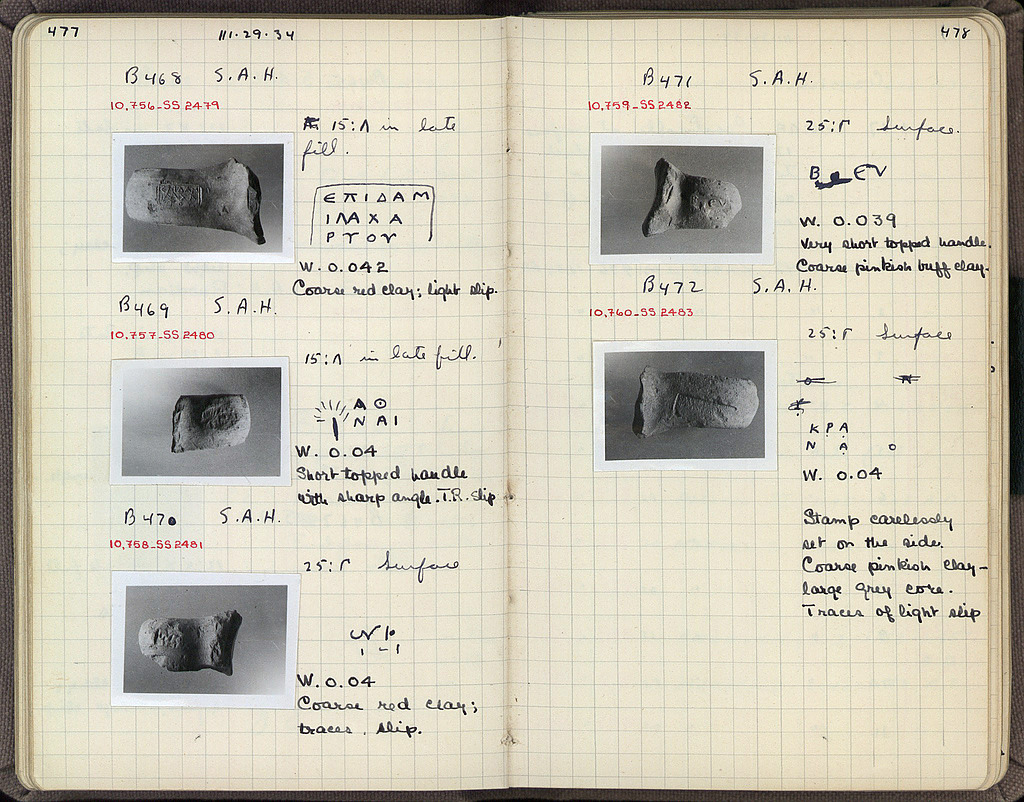 477
111.29.34
B468 S.A.H.
10,756-SS 2479
15:Λ in late
fill.
ΕΠΙΔΑΜ
ΙΛΑΧΑ
ΡΤΟΥ
W. 0.042
Coarse red clay; light slip.
B469 S.A.H.
10,757-SS 2480
15:Λ in late fill.
Α Θ
Ν ΑΙ
W. 0.04
Short topped handle
with sharp angle. T.R. slip
B470 S.A.H.
10,758-SS 2481
25:Γ Surface
W. 0.04
Coarse red clay;
traces. slip.
478
B471 S.A.H.
10,759-SS 2482
25:Γ Surface.
W. 0.039
Very short topped handle.
Coarse pinkish buff clay.
B472 S.A.H.
10,760-SS 2483
25:Γ Surface
Κ Ρ Α
Ν Α Ο
W. 0.04
Stamp carelessly
set on the side.
Coarse pinkish clay-
large grey core.
Traces of light slip